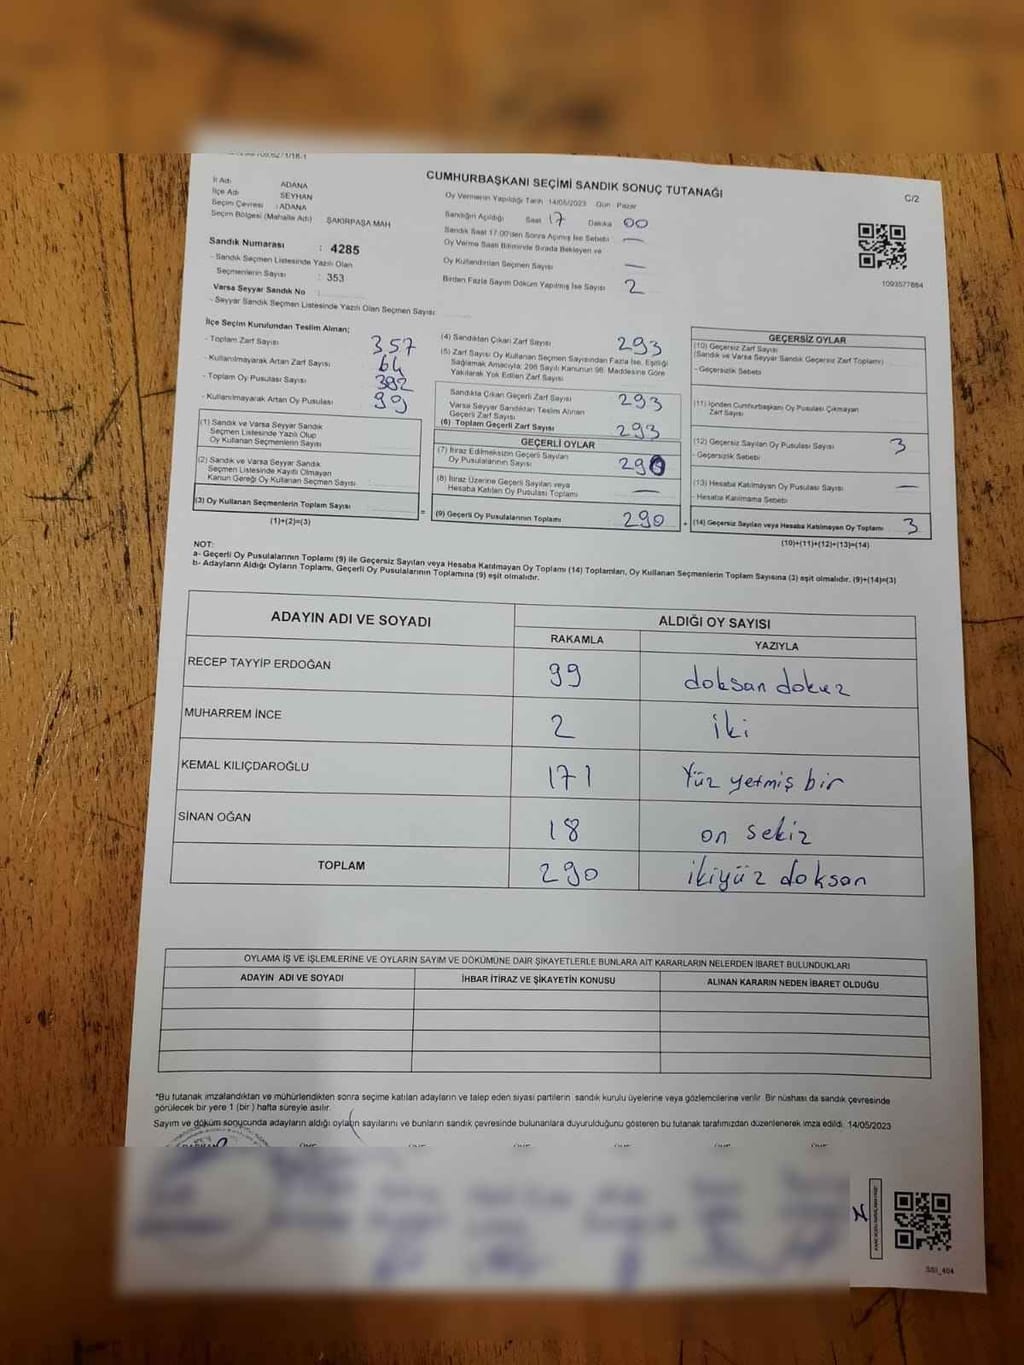 CUMHURBAŞKANI SEÇİMİ SANDIK SONUÇ TUTANAĞI
C/2
İl Adı : ADANA
İlçe Adı : SEYHAN
Seçim Çevresi : ADANA
Seçim Bölgesi (Mahalle Adı) ŞAKİRPAŞA MAH
Sandık Numarası : 4285
- Sandık Seçmen Listesinde Yazılı Olan
Seçmenlerin Sayısı : 353
Varsa Seyyar Sandık No :
- Seyyar Sandık Seçmen Listesinde Yazılı Olan Seçmen Sayısı:
Oy Vermenin Yapıldığı Tarih 14/05/2023 Gün : Pazar
Sandığın Açıldığı Saat 17 Dakika 00
Sandık Saat 17.00'den Sonra Açılmış İse Sebebi —
Oy Verme Saati Bitiminde Sırada Bekleyen ve
Oy Kullandırılan Seçmen Sayısı —
Birden Fazla Sayım Döküm Yapılmış İse Sayısı 2
1093577884
İlçe Seçim Kurulundan Teslim Alınan;
- Toplam Zarf Sayısı 357
- Kullanılmayarak Artan Zarf Sayısı 64
- Toplam Oy Pusulası Sayısı 382
- Kullanılmayarak Artan Oy Pusulası 99
(1) Sandık ve Varsa Seyyar Sandık
Seçmen Listesinde Yazılı Olup
Oy Kullanan Seçmenlerin Sayısı
(2) Sandık ve Varsa Seyyar Sandık
Seçmen Listesinde Kayıtlı Olmayan
Kanun Gereği Oy Kullanan Seçmen Sayısı :
(3) Oy Kullanan Seçmenlerin Toplam Sayısı
(1)+(2)=(3)
=
(4) Sandıktan Çıkan Zarf Sayısı 293
(5) Zarf Sayısı Oy Kullanan Seçmen Sayısından Fazla İse, Eşitliği
Sağlamak Amacıyla, 298 Sayılı Kanunun 98. Maddesine Göre
Yakılarak Yok Edilen Zarf Sayısı
Sandıkta Çıkan Geçerli Zarf Sayısı 293
Varsa Seyyar Sandıktan Teslim Alınan
Geçerli Zarf Sayısı
(6) Toplam Geçerli Zarf Sayısı 293
GEÇERLİ OYLAR
(7) İtiraz Edilmeksizin Geçerli Sayılan
Oy Pusulalarının Sayısı 290
(8) İtiraz Üzerine Geçerli Sayılan veya
Hesaba Katılan Oy Pusulası Toplamı —
(9) Geçerli Oy Pusulalarının Toplamı 290
+
GEÇERSİZ OYLAR
(10) Geçersiz Zarf Sayısı
(Sandık ve Varsa Seyyar Sandık Geçersiz Zarf Toplamı)
- Geçersizlik Sebebi
(11) İçinden Cumhurbaşkanı Oy Pusulası Çıkmayan
Zarf Sayısı
(12) Geçersiz Sayılan Oy Pusulası Sayısı 3
- Geçersizlik Sebebi
(13) Hesaba Katılmayan Oy Pusulası Sayısı —
- Hesaba Katılmama Sebebi
(14) Geçersiz Sayılan veya Hesaba Katılmayan Oy Toplamı 3
(10)+(11)+(12)+(13)=(14)
NOT:
a- Geçerli Oy Pusulalarının Toplamı (9) ile Geçersiz Sayılan veya Hesaba Katılmayan Oy Toplamı (14) Toplamları, Oy Kullanan Seçmenlerin Toplam Sayısına (3) eşit olmalıdır. (9)+(14)=(3)
b- Adayların Aldığı Oyların Toplamı, Geçerli Oy Pusulalarının Toplamına (9) eşit olmalıdır.
ADAYIN ADI VE SOYADI ALDIĞI OY SAYISI
RAKAMLA YAZIYLA
RECEP TAYYİP ERDOĞAN 99 doksan dokuz
MUHARREM İNCE 2 iki
KEMAL KILIÇDAROĞLU 171 Yüz yetmiş bir
SİNAN OĞAN 18 on sekiz
TOPLAM 290 ikiyüz doksan
OYLAMA İŞ VE İŞLEMLERİNE VE OYLARIN SAYIM VE DÖKÜMÜNE DAİR ŞİKAYETLERLE BUNLARA AİT KARARLARIN NELERDEN İBARET BULUNDUKLARI
ADAYIN ADI VE SOYADI İHBAR İTİRAZ VE ŞİKAYETİN KONUSU ALINAN KARARIN NEDEN İBARET OLDUĞU
*Bu tutanak imzalandıktan ve mühürlendikten sonra seçime katılan adayların ve talep eden siyasi partilerin sandık kurulu üyelerine veya gözlemcilerine verilir. Bir nüshası da sandık çevresinde
görülecek bir yere 1 (bir) hafta süreyle asılır.
Sayım ve döküm sonucunda adayların aldığı oyların sayılarını ve bunların sandık çevresinde bulunanlara duyurulduğunu gösteren bu tutanak tarafımızdan düzenlenerek imza edildi. 14/05/2023
SSİ_404